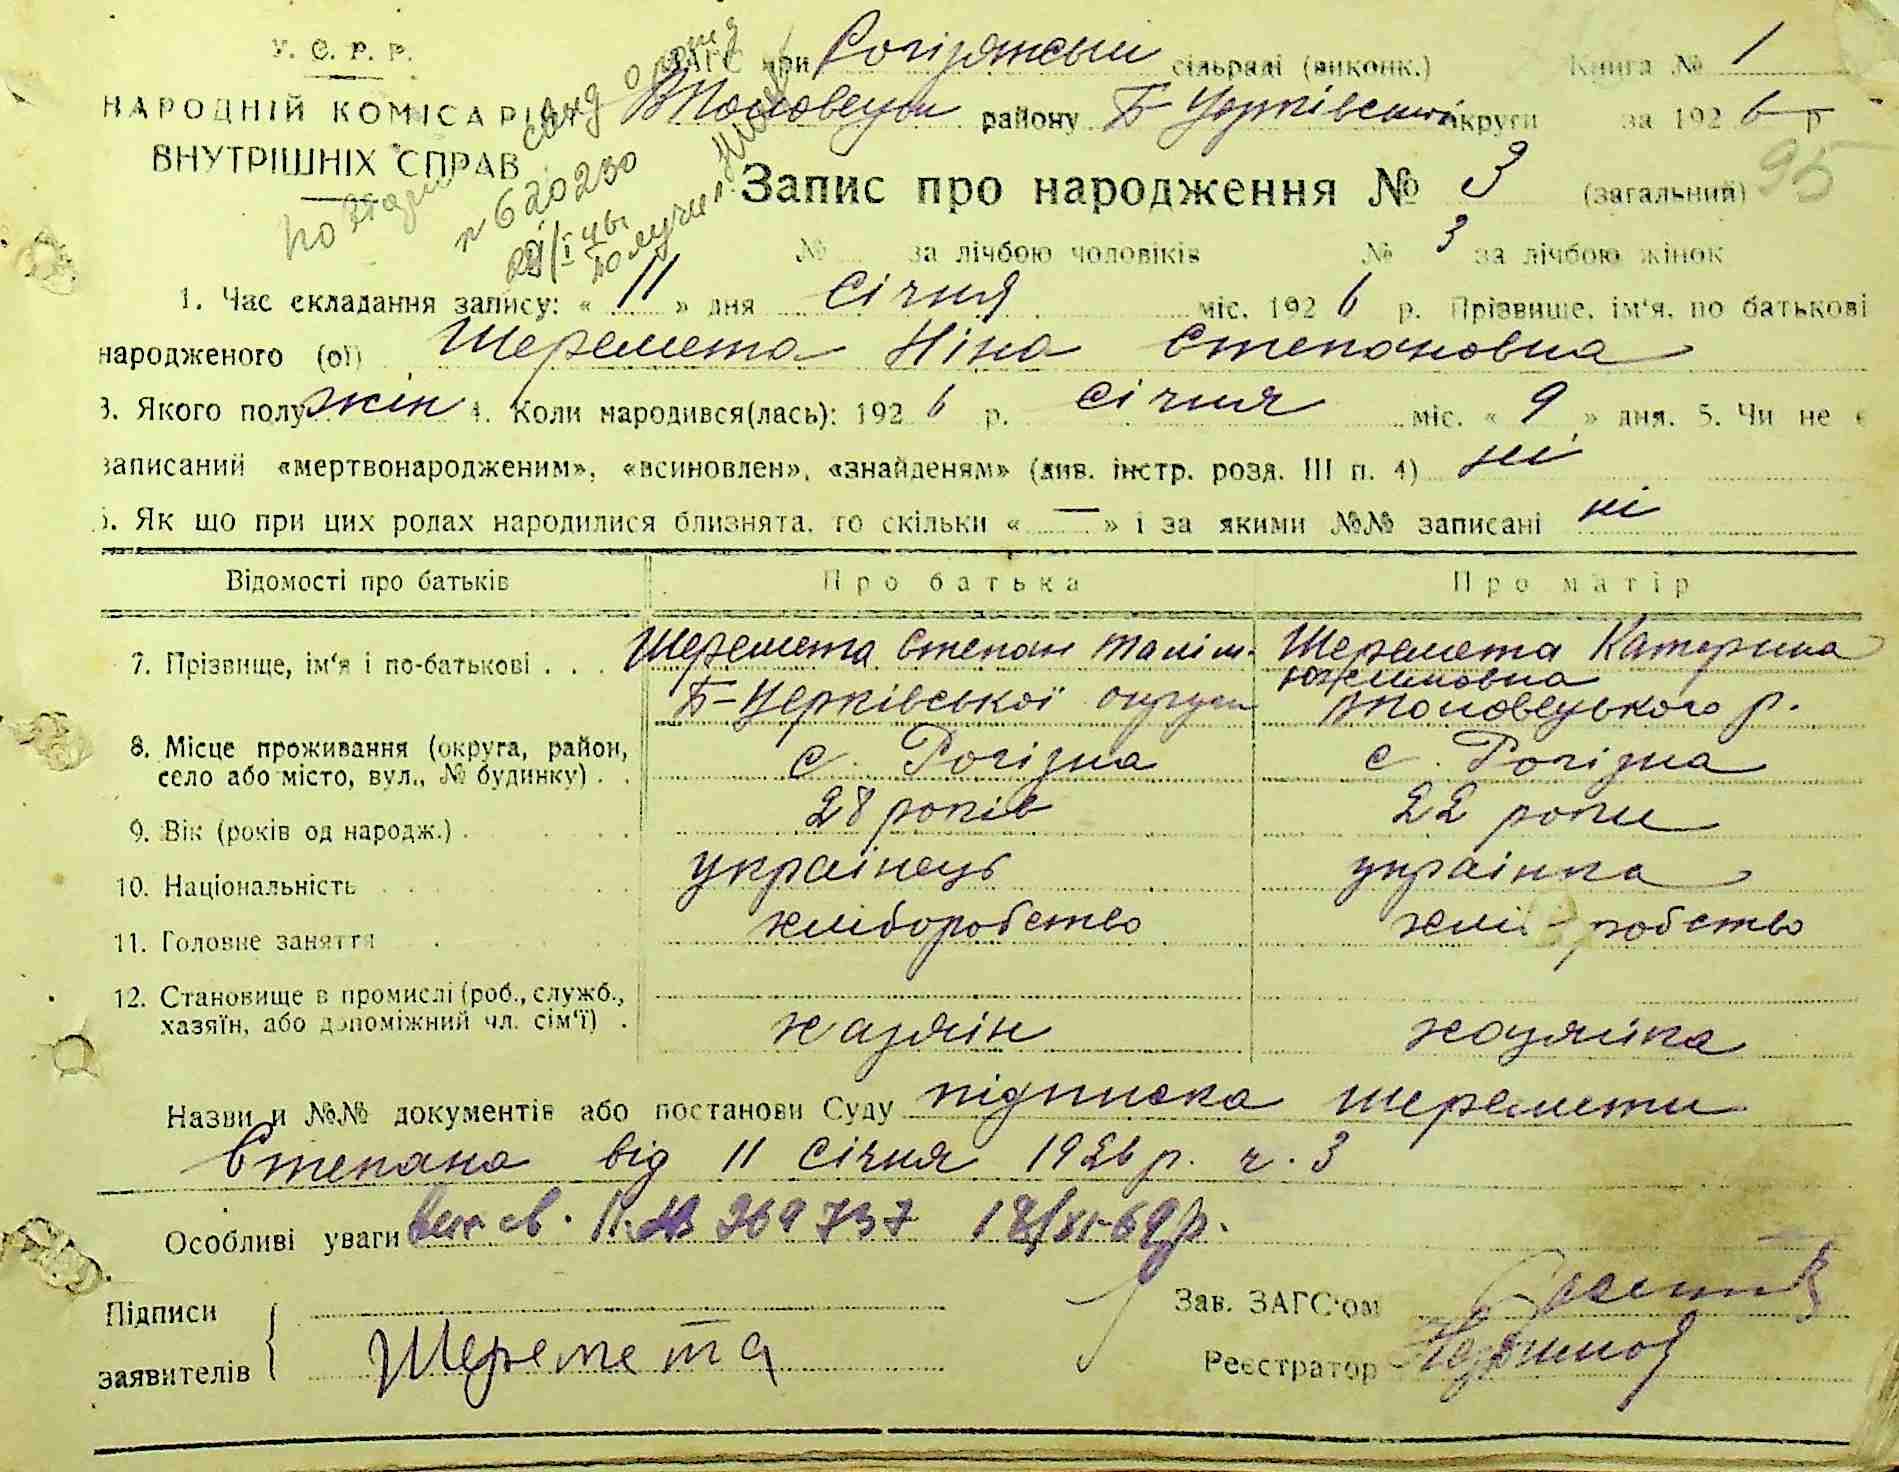 У. С. Р. Р.
НАРОДНІЙ КОМІСАРІЯТ
ВНУТРІШНІХ СПРАВ
ЗАГС при Рогізянській сільраді (виконк.) Книга № 1
району Б-Церківської округи за 1926 р
n 620230
получил
Запис про народження № 3 (загальний) 95
№ за лічбою чоловіків № 3 за лічбою жінок
1. Час складання запису: « 11 » дня Січня міс. 1926 р. Прізвище, ім'я, по батькові
народженого (ої) Шеремета Ніна Степановна
3. Якого полу жін 4. Коли народився(лась): 1926 р. Січня міс. « 9 » дня. 5. Чи не є
записаний «мертвонародженим», «всиновлен», «знайденям» (див. інстр. розд. III п. 4) ні
6. Як що при цих родах народилися близнята, то скільки « — » і за якими №№ записані ні
Відомості про батьків Про батька Про матір
7. Прізвище, ім'я і по-батькові . . . Шеремета Степан Шеремета Катерина
Б-Церківської округи р.
8. Місце проживання (округа, район,
село або місто, вул., № будинку) . . с. Рогізна с. Рогізна
9. Вік (років од народж.) . 28 років 22 роки
10. Національність українець українка
11. Головне заняття хліборобство хліборобство
12. Становище в промислі (роб., служб.,
хазяїн, або допоміжний чл. сім'ї) . хазяїн хозяйка
Назви и №№ документів або постанови Суду підписка шеремети
Степана від 11 Січня 1926 р. ч. 3
Особливі уваги св. 269737 18/XI-69 р.
Підписи
заявителів Шеремета
Зав. ЗАГС'ом
Реєстратор